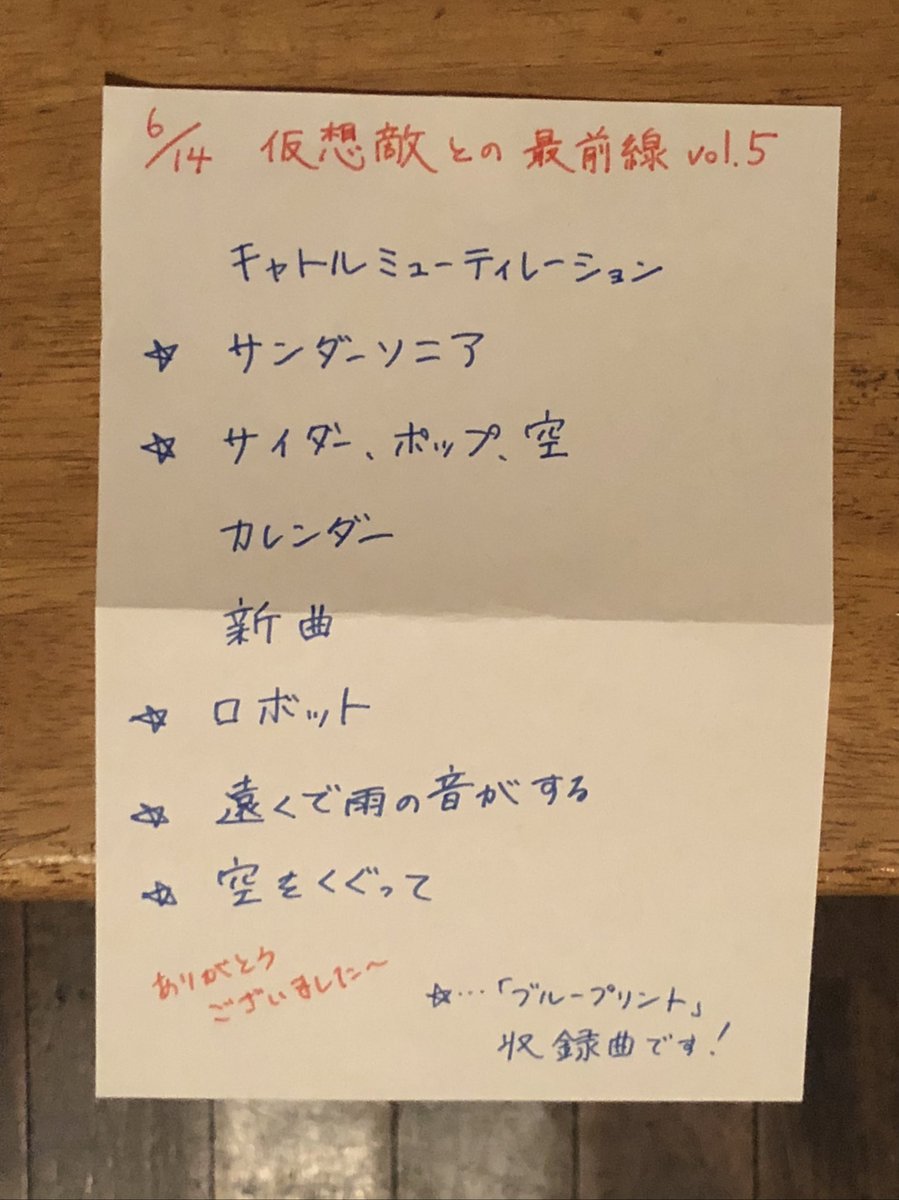 6/14 仮想敵との最前線 vol.5
キャトルミューティレーション
☆ サンダーソニア
☆ サイダー、ポップ、空
カレンダー
新曲
☆ ロボット
☆ 遠くで雨の音がする
☆ 空をくぐって
ありがとう
ございました〜
☆…「ブループリント」
収録曲です!